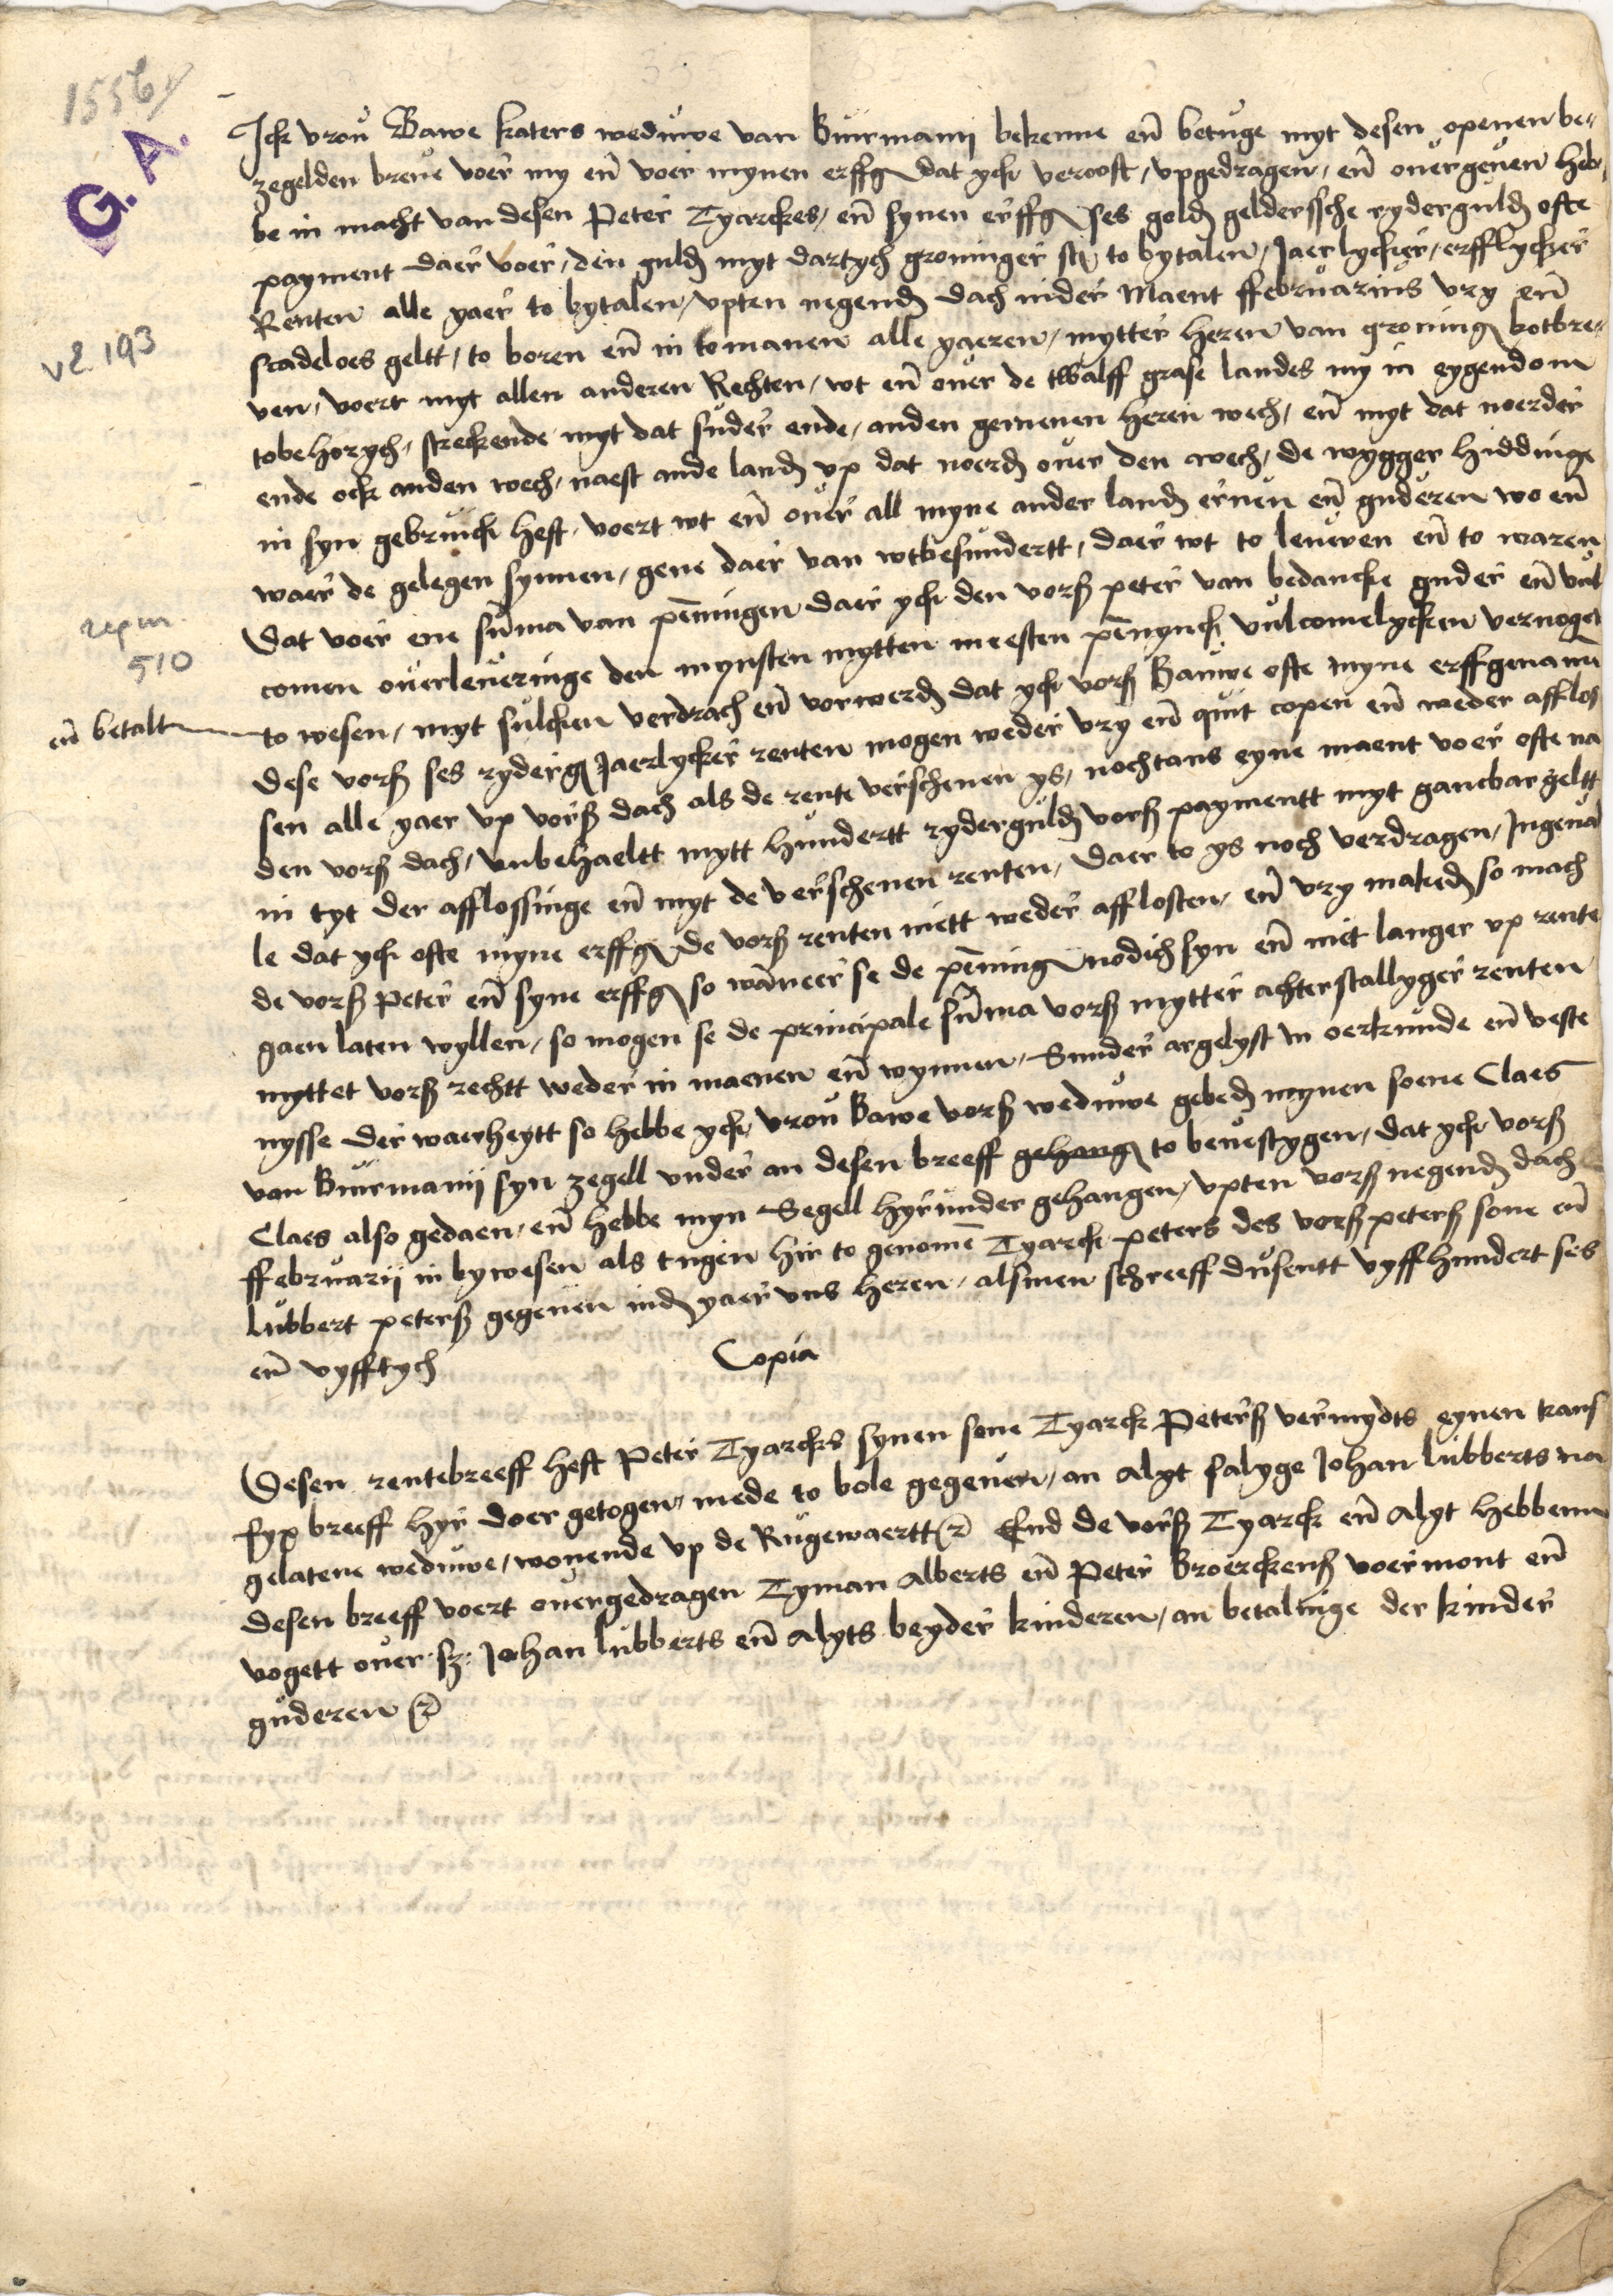 1556
G. A.
Ick vrou Bawe katers weduwe van Buirmanij bekenne en̄ betuge myt desen openen be„
zegelden breue voer my en̄ voer mynen erffg dat yck vercoft / vpgedragen / en̄ ouergeuen heb„
be in macht van desen Peter Tyarckes / en̄ synen erffg ses gold geldersche ryderguld ofte
payment daer voer / den guld myt dartych groninger st to bytalen / Jaerlycker / erfflycker
Renten alle yaer to bytalen / vpten negend dach in der Maent ffebruarius vry en̄
scadeloes geltt / to boren en̄ in to manen alle yaeren / mytter heren van groning botbre„
v2 193
uen / voert myt allen anderen Rechten / wt en̄ ouer de twalff grase landes my in eygendom
tobehorych / streckende myt dat suder ende / anden gemenen heren wech / en̄ myt dat noerder
ende ock anden wech / naest ande land vp dat noerd ouer den wech / de wygger hiddinge
in syn gebruick heft / voert wt en̄ ouer all myne ander land eruen en̄ guderen wo en̄
waer de gelegen synnen / gene daer van wtbesundertt / daer wt to leueren en̄ to waren
Dat voer ene sūma van pēningen daer yck den vorß peter van bedancke guder en̄ vul
repm.
510
comen ouerleueringe den mynsten mytten meesten pēnynck vulcomelycken vernoget
en̄ betalt
to wesen / myt sulcken verdrach en̄ vorwerd dat yck vorß Bauwe ofte myne erffgenam̄
dese vorß ses ryderg Jaerlycker renten mogen weder vry en̄ quit copen en̄ weder afflos
sen alle yaer vp vorß dach als de rente verschenen ys / nochtans eyne maent voer ofte na
den vorß dach / vnbehaeltt mytt hundertt ryderguld vorß paymentt myt gancbar geltt
in tyt der afflossinge en̄ myt de verschenen renten / Daer to ys noch verdragen / Ingeual
le dat yck ofte myne erffg de vorß renten niett weder afflosten / en̄ vry maked so mach
de vorß Peter en̄ syne erffg so wāneer se de pēning nodich syn en̄ niet langer vp rente
gaen laten wyllen / so mogen se de principale sūma vorß mytter achterstallyger renten
myttet vorß rechtt weder in maenen en̄ wynnen / Sunder argelyst In oerkunde en̄ veste
nysse der waerheytt so hebbe yck vrou Bawe vorß weduwe gebed mynen soene Claes
van Buirmanij syn zegell vnder an desen breeff gehang to beuestygen / dat yck vorß
Claes also gedaen / en̄ hebbe myn Segell hyrunder gehangen / vpten vorß negend dach
ffebruarij in bywesen als tugen hir to genomē Tyarck peters des vorß peterß sone en̄
lubbert peterß gegeuen ind yaer vns heren / alsmen schreeff dusentt vyffhundert ses
en̄ vyfftych
Copia
Desen rentebreeff heft Peter Tyarcks synen sone Tyarck Peterß vermydts eynen trans
fyx breeff hyr doer getogen / mede to bole gegeuen / an alyt salyge Johan lubberts na
gelatene weduwe / wonende vp de Rugewaertt End de vorß Tyarck en̄ alyt hebbenn
desen breeff voert ouergedragen Tyman alberts en̄ Peter broerckenß voermont en̄
vogett ouer sz: Johan lubberts en̄ alyts beyder kinderen / an betalinge der kinder
guderen